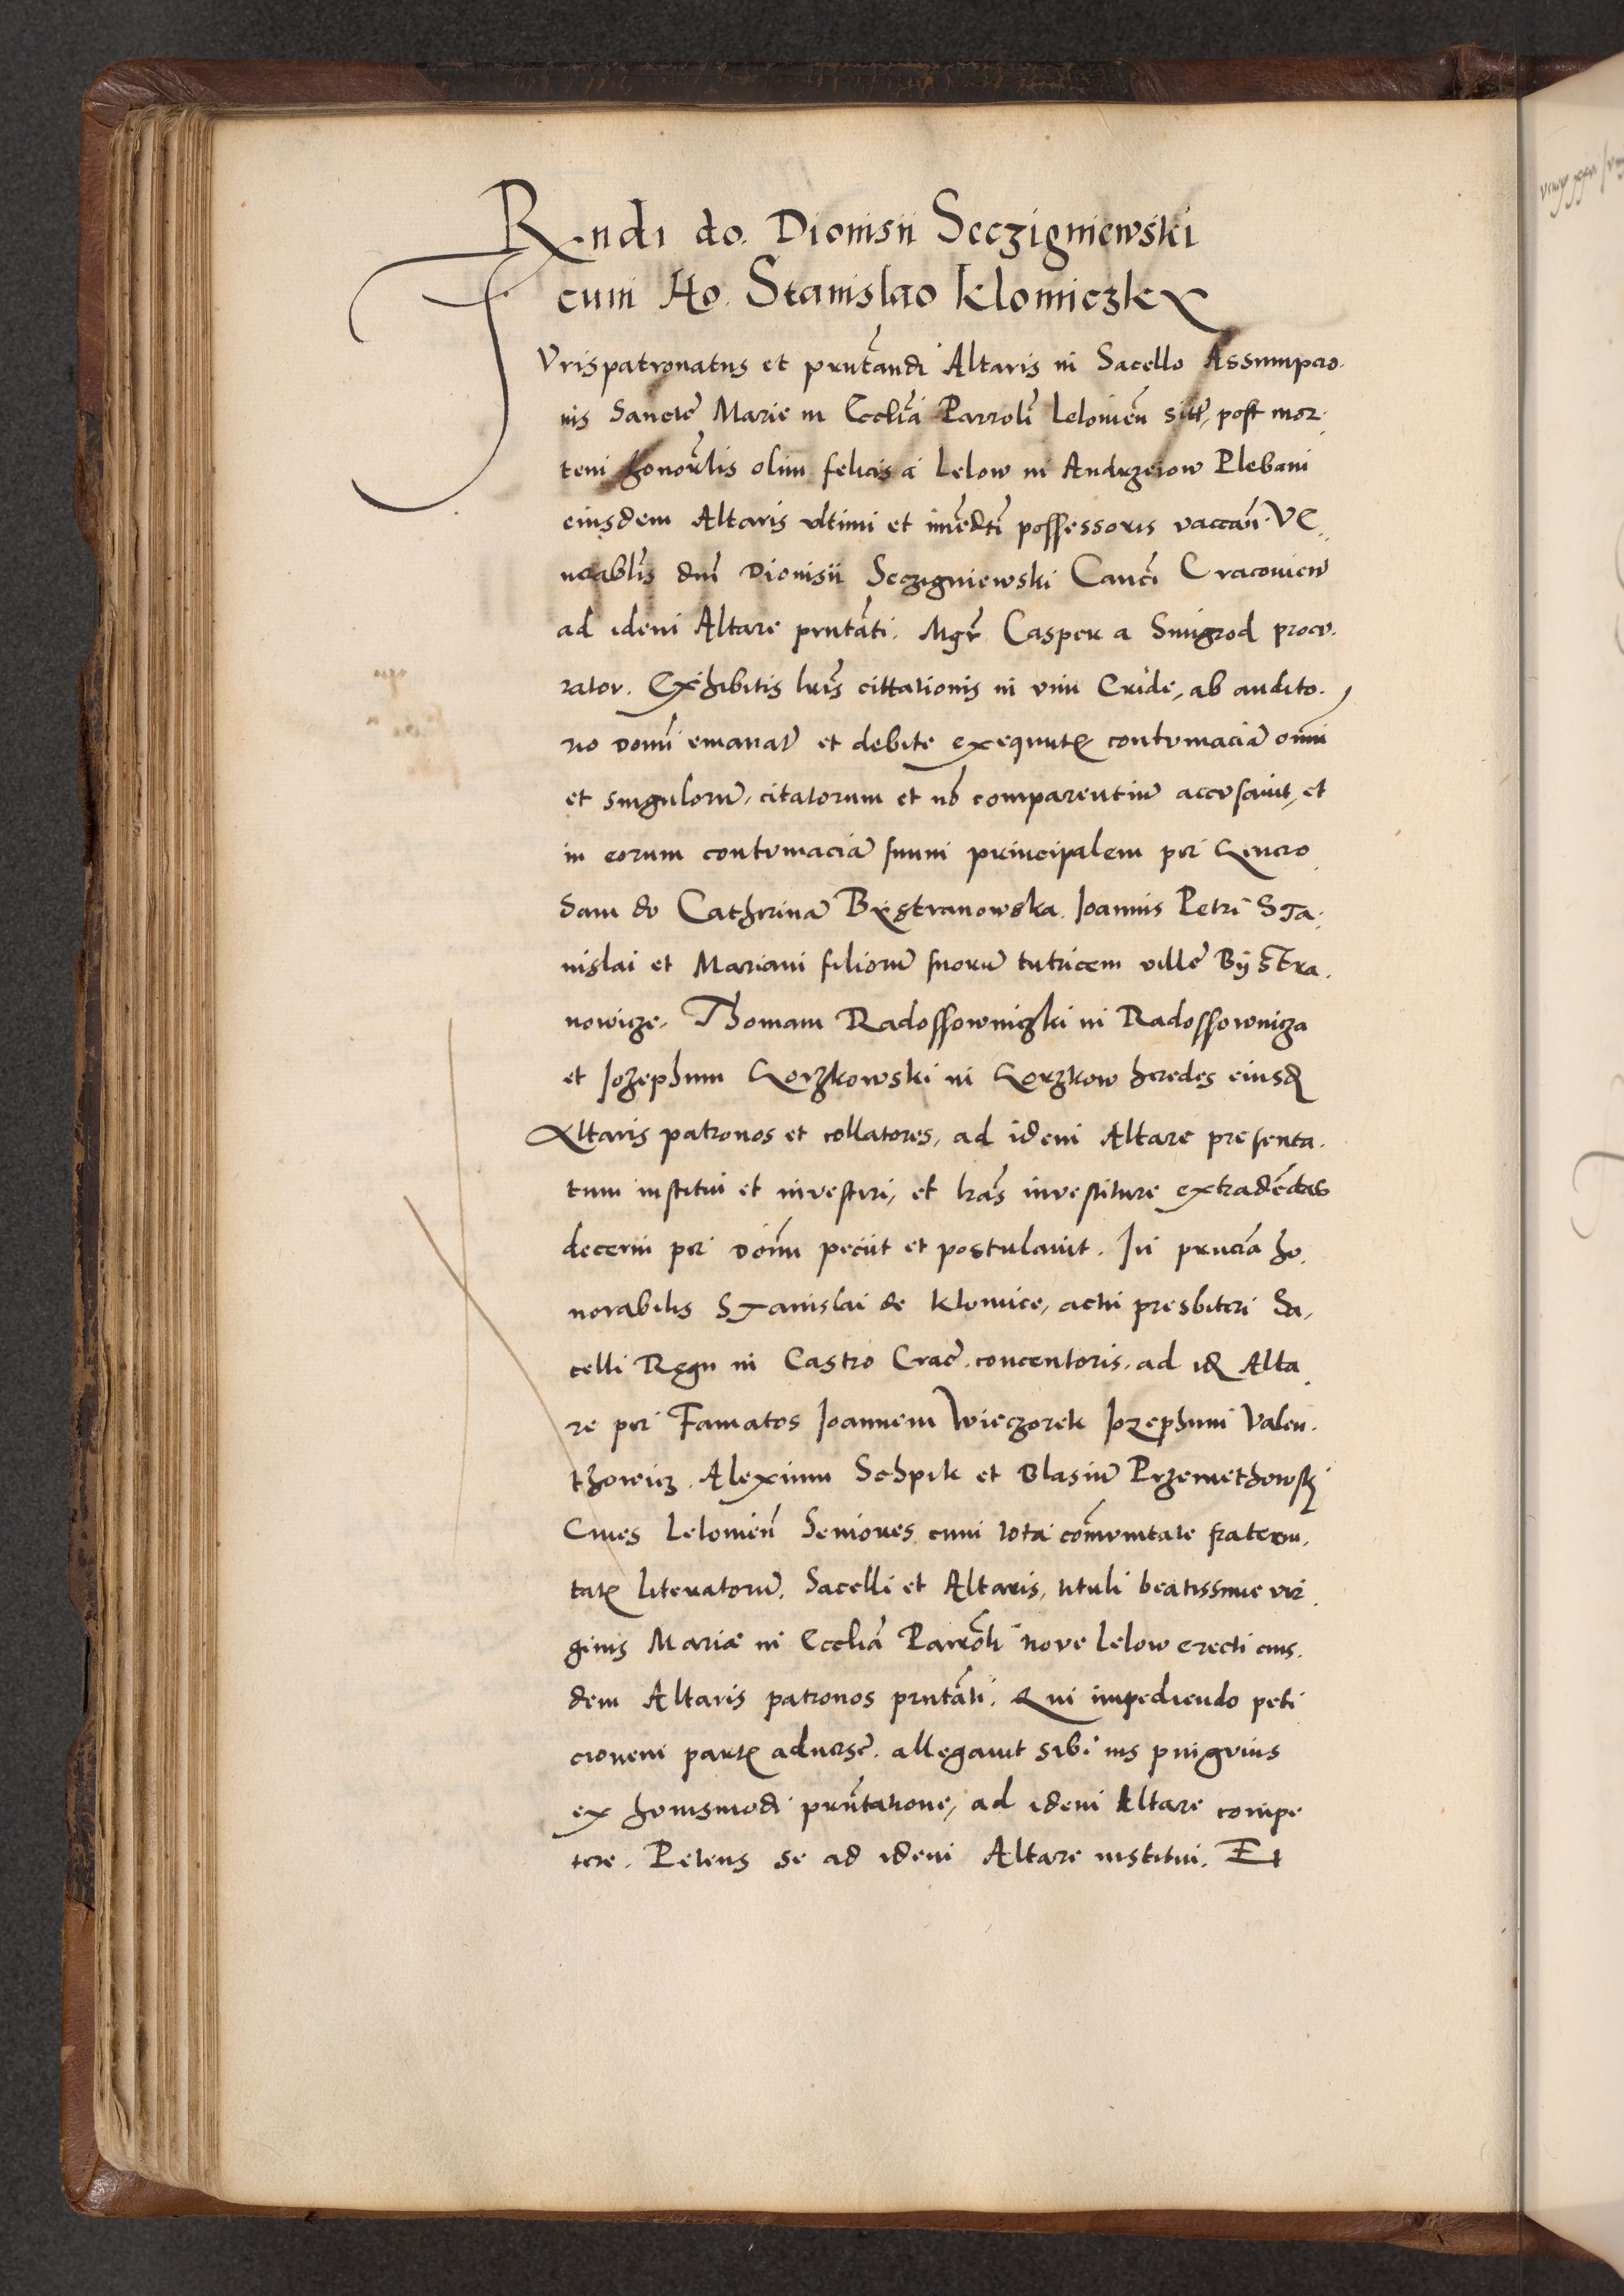 Rndi do. Dionisii Seczigniewski
cum Ho. Stanislao Klomiczky
Jvrispatronatus et prntãndi Altaris in Sacello Assumpcio.
nis Sancte Marie in Ecclĩa Parrolĩ Leloviẽn sitt, post mor.
tem honorãlis olim felicis a Lelow in Andrzeiow Plebani
eiusdem Altaris vltimi et imẽdti possessoris vaccañ. VE.
nerablis dnĩ Dionisii Seczigniewski Canci Cracovień
ad idem Altare prntãti. Mgr Casper a Smigrod procu.
rator. Exhibitis lris cittationis in vim Cride, ab audito.
rio domĩ emanat et debite exequut contumaciã omni
et singulorũ, citatorum et nõ comparentiũ accusavit, et
in eorum contumaciã suum principalem per Genero
sam do Catherinã Bystranowska. Joannis Petri STa.
nislai et Mariani filiorũ suorũ tutricem ville Bystra.
nowicze. Thomam Radossowniczki in Radossownicza
et Jozephum Gorzkowski in Gorzkow heredes eiusd
Altaris patronos et collatores, ad idem Altare presenta.
tum institui et investiri, et lrãs investiture extradẽdas
decerni per dom̃ peciit et postulavit. In prnciã ho.
norabilis Stanislai de Klomice, actu presbiteri Sa,
celli Regii in Castro Crac̃. concentoris. ad id Alta
re per Famatos Joannem Wieczorek Jozephum Valen.
thowicz. Alexium Schpik et Blasiũ Przemethowsk
Cives Leloviẽn Seniores cum tota com̃unitate fraterni.
tat literatorũ. Sacelli et Altaris, tituli beatissime vir
ginis Mariæ in Eccliã Parrõli nove Lelow erecti eius.
dem Altaris patronos prntãti. Qui impediendo peti
cionem part adverse. allegavit sibi ius pinguius
ex huiusmodi prñtatione, ad idem Altare compe
tere. Petens se ad idem Altare institui. Et